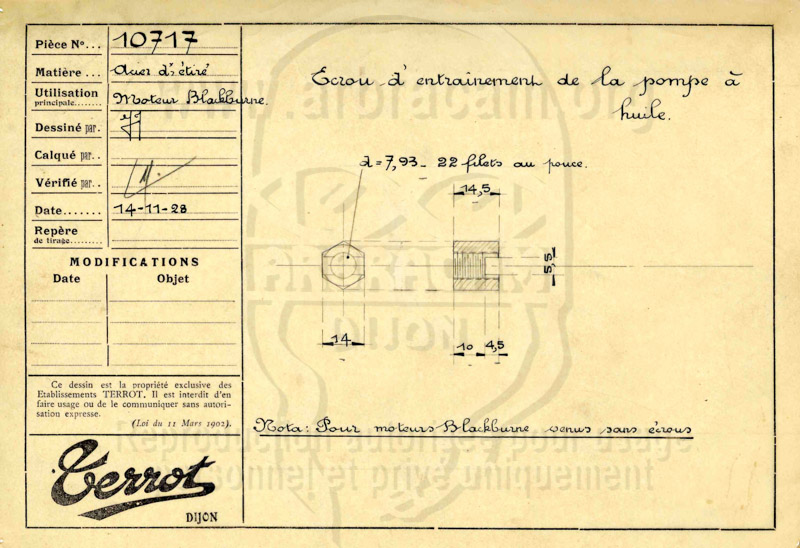 Pièce No... 10717
Matière... Acier étiré
Utilisation
principale........ Moteur Blackburne.
Dessiné par.
Calqué par..
Vérifié par..
Date....... 14-11-28
Repère
de tirage........
MODIFICATIONS
Date Objet
Ce dessin est la propriété exclusive des
Etablissements TERROT. Il est interdit d'en
faire usage ou de le communiquer sans autori-
sation expresse.
(Loi du 11 Mars 1902).
Terrot
DIJON
Ecrou d'entrainement de la pompe à
huile.
d=7,93_ 22 filets au pouce.
14,5
5,5
14
10 4,5
Nota: Pour moteurs Blackburne venus sans écrous
www.arbracam.org
ARBRACAM
DIJON
Reproduction autorisée pour usage
personnel et privé uniquement